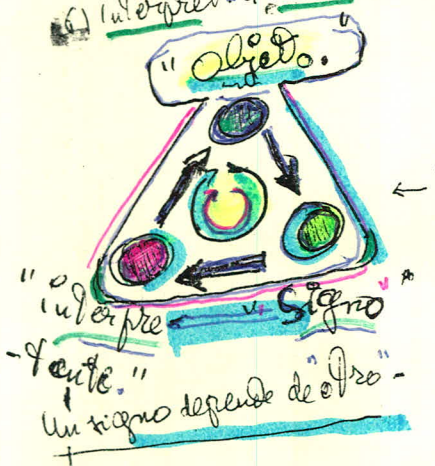 6) interpre
"Objeto."
"interpre Signo"
-tante."
Un signo depende de "otro"-